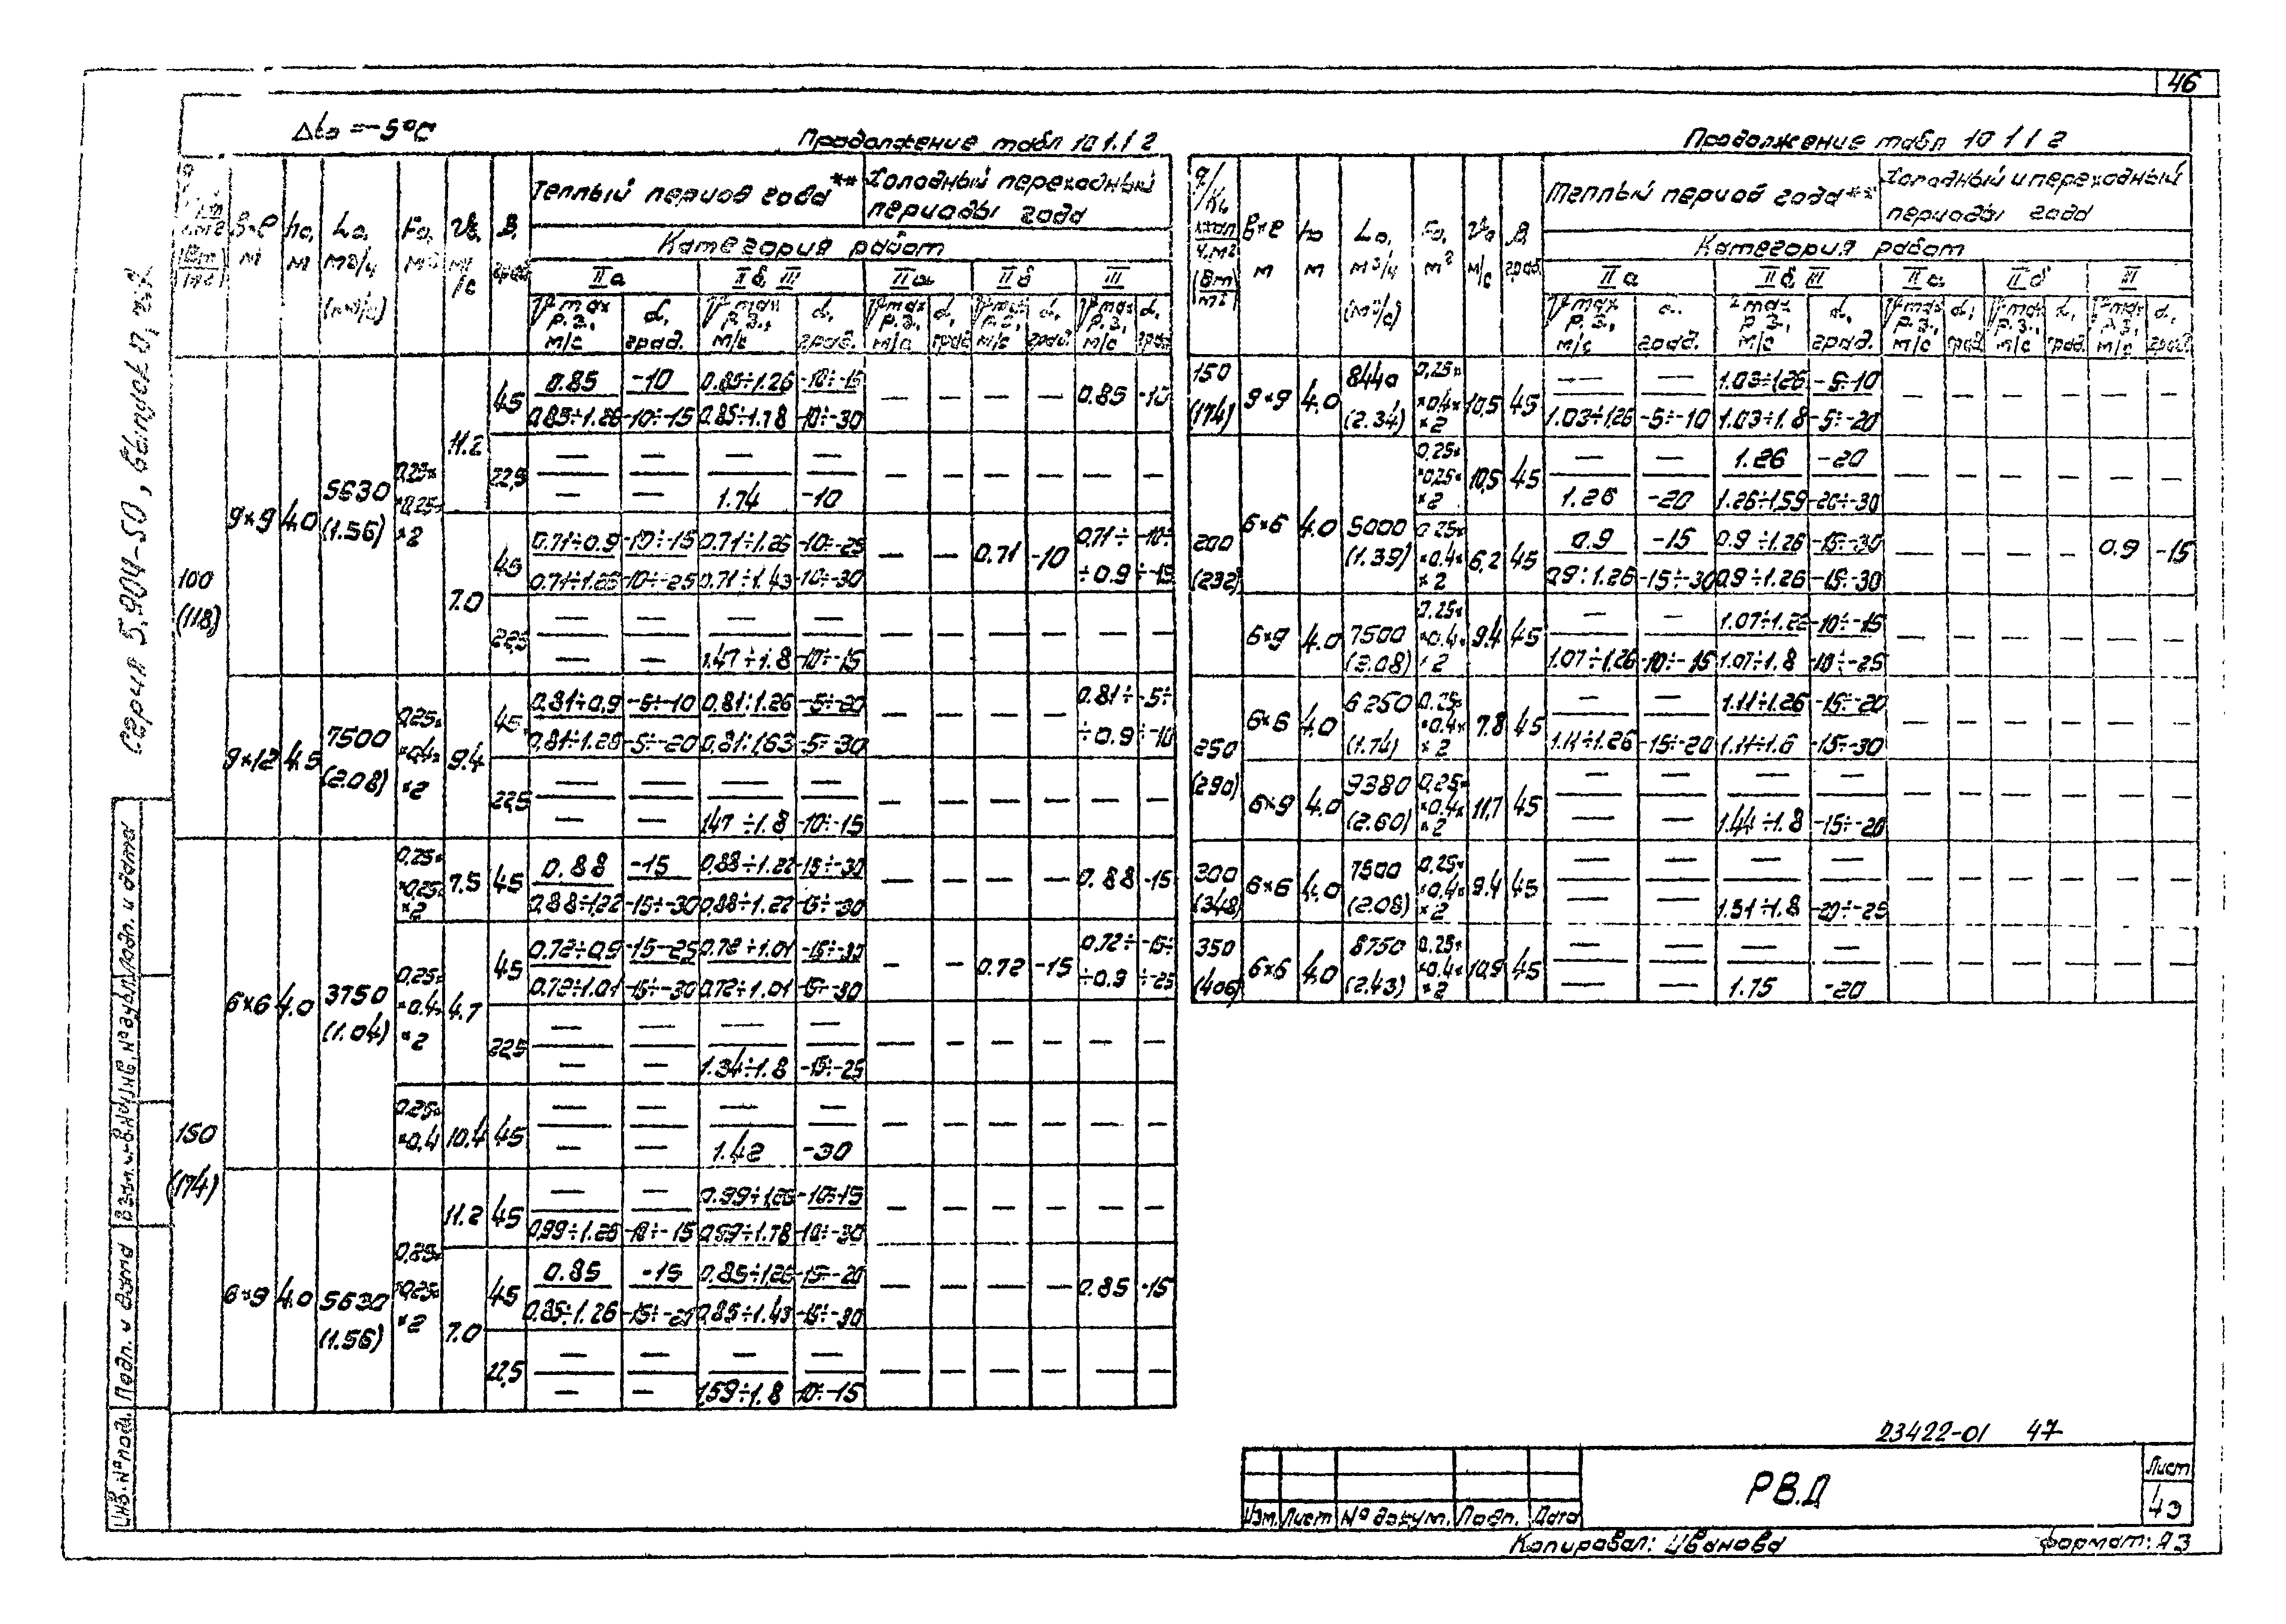 46
Серия 5.904-50, выпуск 0, ч.2
Δto =-5°С
Продолжение табл 10 1.1 2
Теплый период года** Холодный переходный периоды года
Категория работ
В×ℓ м
ho, м
Lo, м3/ч (м3/с)
Fo, м2
Vo, м/с
β, град
IIа IIб, III IIа IIб III
Vmax р.з., м/с α, град. Vmax р.з., м/с α, град. Vmax р.з., м/с α, град Vmax р.з., м/с α, град. Vmax р.з., м/с α, град
100 (118) 9×9 4.0 5630 (1.56) 0,25× ×0,25× ×2
11.2 45 0.85 -10 0.85÷1.26 -10÷-15 — — — — 0.85 -10
0.85÷1.26 -10÷-15 0.85÷1.78 -10÷-30
22,5 — — — — — — — — — —
— — 1.74 -10
7.0 45 0.71÷0.9 -10÷-15 0.71÷1.26 -10÷-25 — — 0.71 -10 0.71÷ ÷0.9 -10÷ ÷-15
0.71÷1.26 -10÷-25 0.71÷1.43 -10÷-30
22,5 — — — — — — — — — —
— — 1.47÷1.8 -10÷-15
9×12 4.5 7500 (2.08) 0,25× ×0,4× ×2 9.4
45 0.81÷0,9 -5÷-10 0.81÷1.26 -5÷-20 — — — — 0.81÷ ÷0.9 -5÷ ÷-10
0.81÷1.26 -5÷-20 0.81÷1,63 -5÷-30
22,5 — — — — — — — — — —
— — 1.47÷1.8 -10÷-15
150 (174) 6×6 4.0 3750 (1.04)
0,25× ×0,25× ×2 7.5 45 0.88 -15 0.88÷1.22 -15÷-30 — — — — 0.88 -15
0.88÷1,22 -15÷-30 0.88÷1.22 -15÷-30
0,25× ×0,4× ×2 4.7 45 0.72÷0,9 -15-25 0.72÷1.01 -15÷-30 — — 0.72 -15 0.72÷ ÷0.9 -15÷ ÷-25
0.72÷1.01 -15÷-30 0.72÷1.01 -15÷-30
22,5 — — — — — — — — — —
— — 1.34÷1.8 -15÷-25
0,25× ×0,4 10.4 45 — — — — — — — — — —
— — 1.42 -30
6×9 4.0 5630 (1.56) 0,25× ×0,25× ×2
11.2 45 — — 0.99÷1,26 -10÷-15 — — — — — —
0,99÷1.26 -10÷-15 0,99÷1.78 -10÷-30
7.0 45 0.85 -15 0.85÷1,26 -15÷-20 — — — — 0.85 -15
0.85÷1.26 -15÷-20 0,85÷1.43 -15÷-30
22,5 — — — — — — — — — —
— — 1,59÷1.8 -10÷-15
Продолжение табл 10 1 1 2
q/Kь ккал/ч.м2 (Вт/м2)
В×ℓ м
ho м
Lo, м3/ч (м3/с)
Fo, м2
Vo м/с
β, град.
Теплый период года** Холодный и переходный периоды года
Категория работ
IIа IIб, III IIа IIб III
Vmax р.з., м/с α. град. Vmax р.з., м/с α, град. Vmax р.з., м/с α, град Vmax р.з., м/с α, град. Vmax р.з., м/с α, град.
150 (174) 9×9 4.0 8440 (2.34) 0,25× ×0.4× ×2 10,5 45 — — 1.03÷1,26 -5÷-10 — — — — — —
1.03÷1,26 -5÷-10 1.03÷1.8 -5÷-20
200 (232) 6×6 4.0 5000 (1.39)
0,25× ×0,25× ×2 10,5 45 — — 1.26 -20 — — — — — —
1.26 -20 1.26÷1,59 -20÷-30
0,25× ×0.4× ×2 6,2 45 0.9 -15 0.9÷1.26 -15÷-30 — — — — 0.9 -15
0,9÷1.26 -15÷-30 0.9÷1.26 -15÷-30
6×9 4.0 7500 (2.08) 0.25× ×0.4× ×2 9.4 45 — — 1.07÷1.22 -10÷-15 — — — — — —
1.07÷1,26 -10÷-15 1.07÷1.8 -10÷-25
250 (290) 6×6 4.0 6250 (1.74) 0.25× ×0.4× ×2 7.8 45 — — 1.11÷1.26 -15÷-20 — — — — — —
1.11÷1.26 -15÷-20 1.11÷1.6 -15÷-30
6×9 4.0 9380 (2.60) 0,25× ×0.4× ×2 11,7 45 — — — — — — — — — —
— — 1.44÷1.8 -15÷-20
300 (348) 6×6 4.0 7500 (2.08) 0,25× ×0.4× ×2 9.4 45 — — — — — — — — — —
— — 1.51÷1.8 -20÷-25
350 (406) 6×6 4.0 8750 (2.43) 0.25× ×0.4× ×2 10,9 45 — — — — — — — — — —
— — 1.75 -20
23422-01 47
РВ.Д
Лист
43
Изм. Лист № докум. Подп. Дата
Копировал: Иванова
Формат: А3
Инв. № подл. Подп. и дата Взам. инв. № Инв. № дубл. Подп. и дата